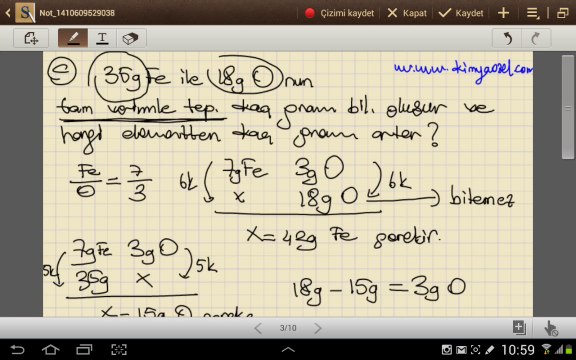 Not_1410609529038
Çizimi kaydet
Kapat
Kaydet
www.kimyaozel.com
35g Fe ile 18g O nun
tam verimle tep. kaç gram bil. oluşur ve
hangi elementten kaç gram artar?
Fe/O = 7/3
6k 7gFe 3gO 6k
x 18g O → bitemez
x = 42g Fe gerekir.
7gFe 3gO
5k 35g x 5k
x = 15g O gerekir
18g - 15g = 3g O
3/10
10:59